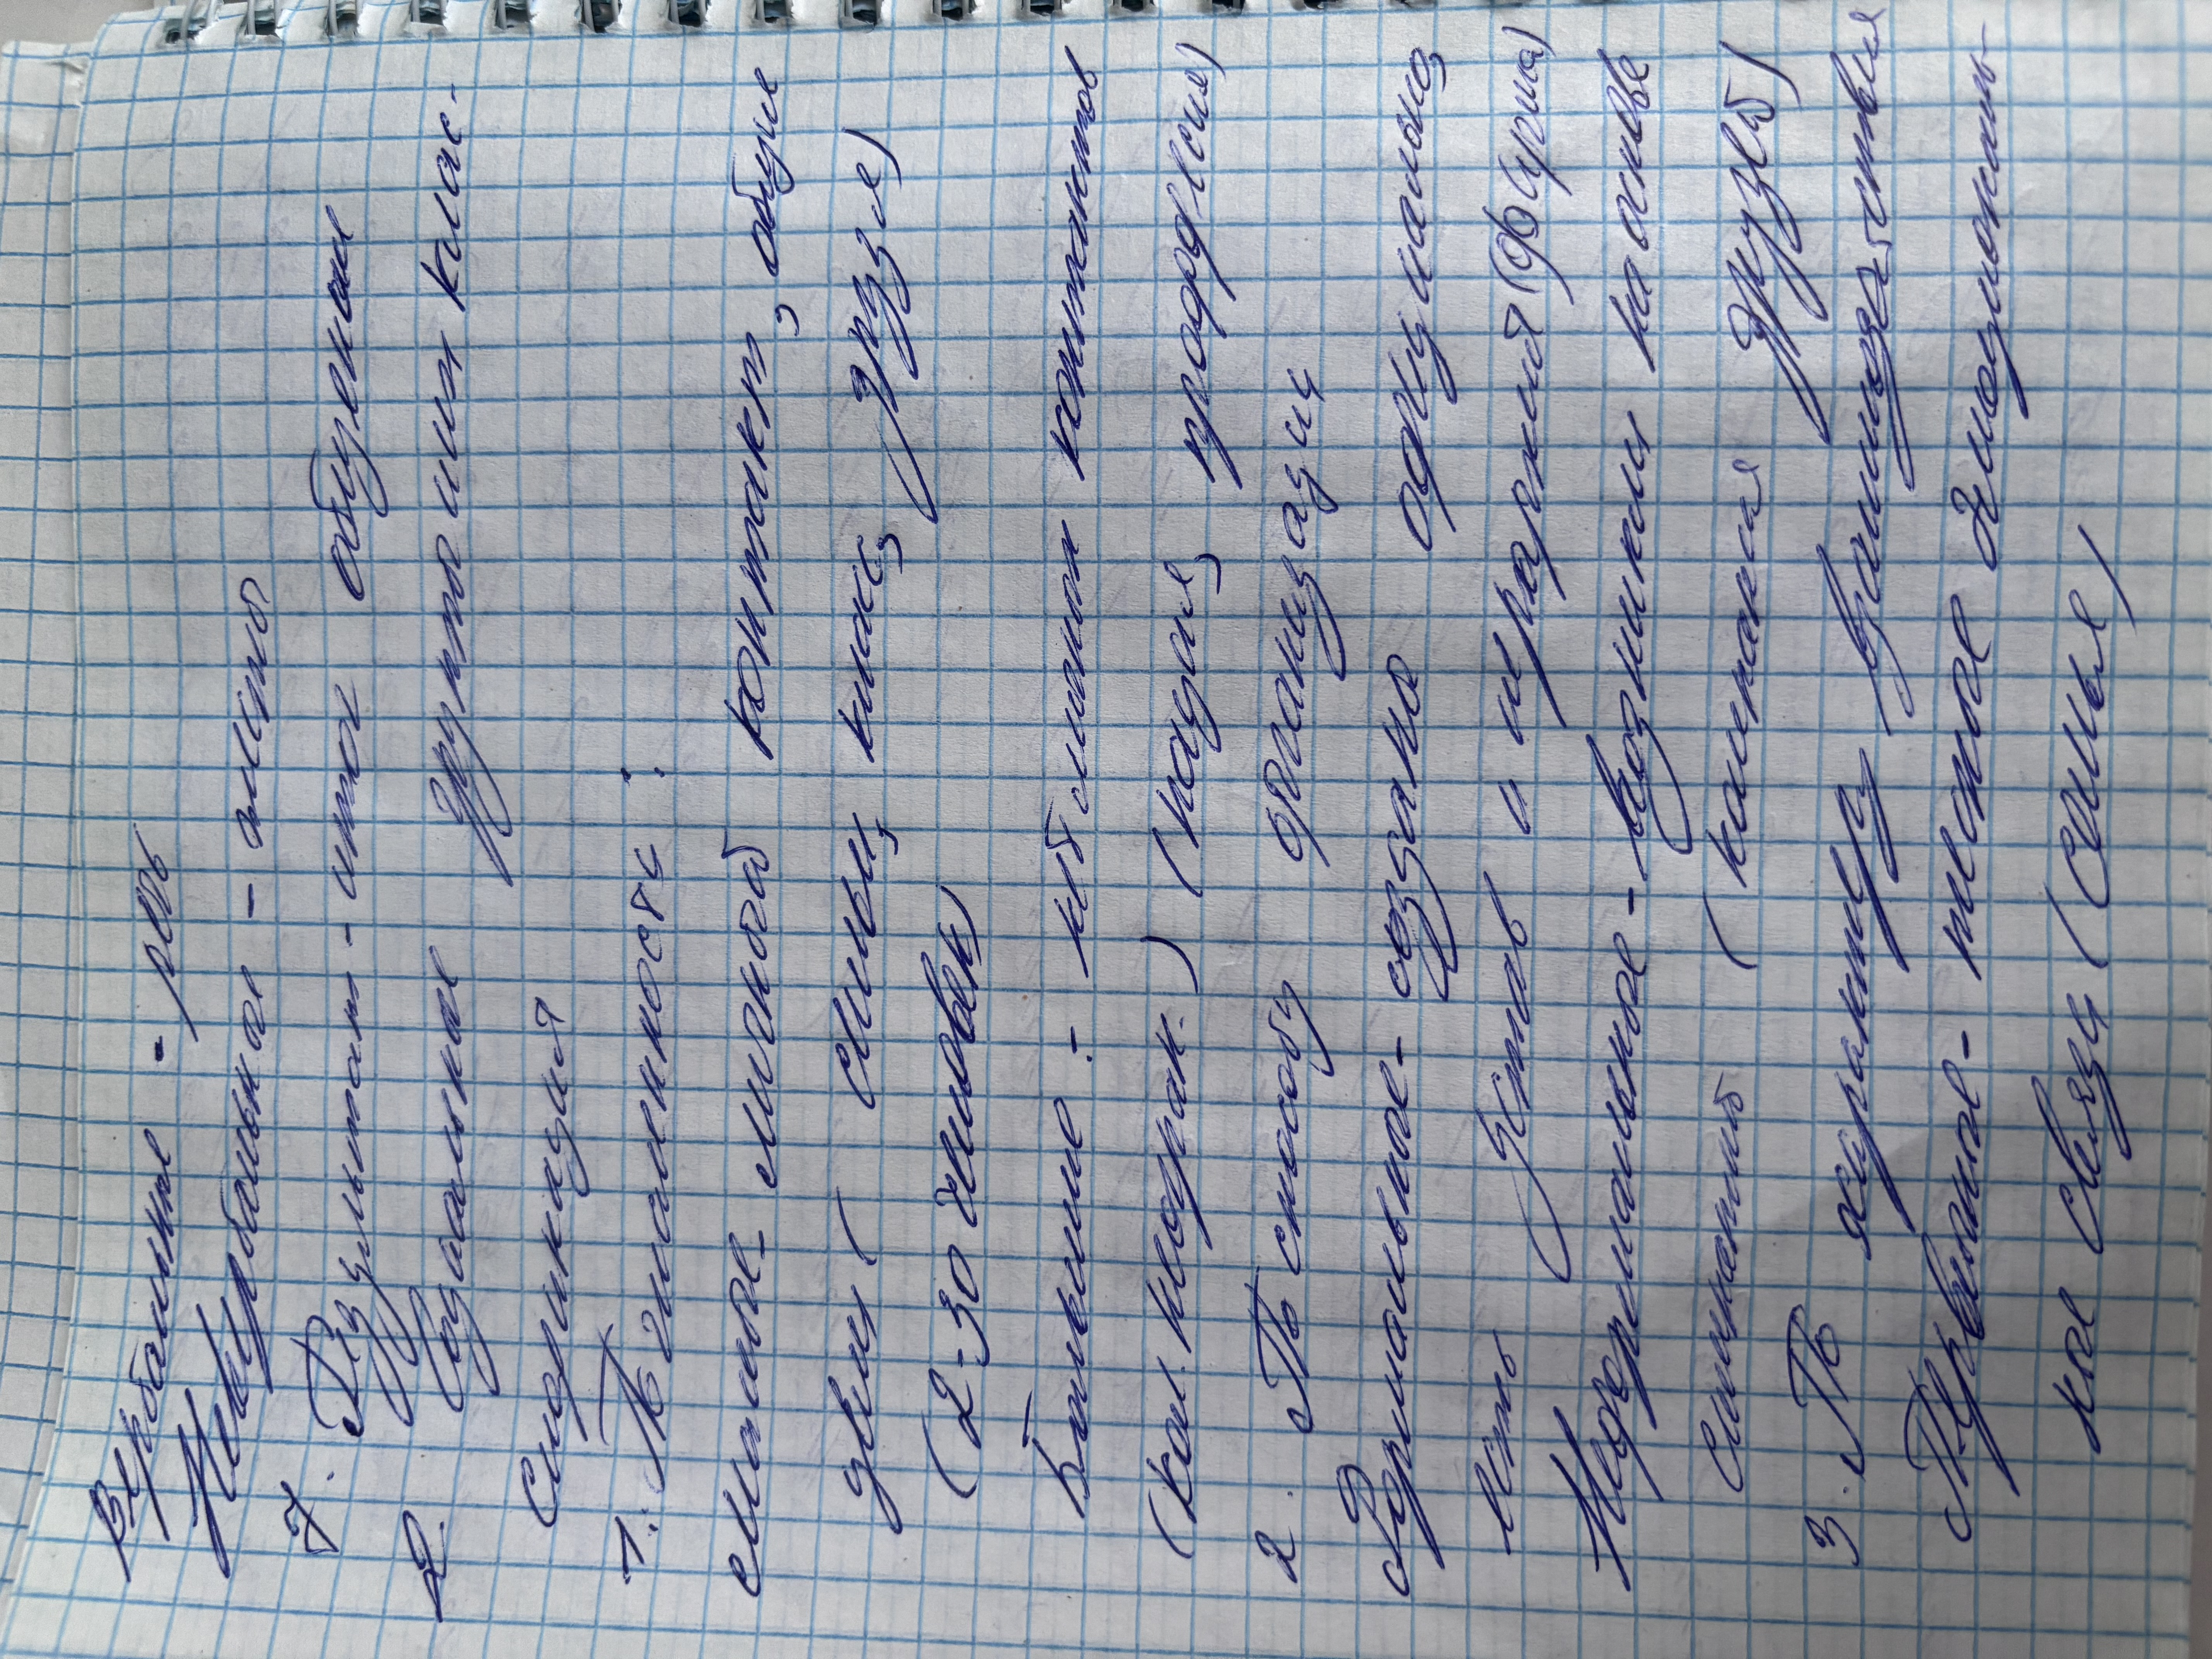 Вербальное - речь
Невербальное - жесты
7. Результат - итог общения
2. Социальные группы и их клас-
сификация
1. По численности:
малые - личной контакт, общие
цели (семья, класс, друзья)
(2-30 человек)
Большие - нет личных контактов
(кол. неогран.) (нация, профессия)
2. По способу организации
Формальные - созданы официально,
есть устав и иерархия (фирма)
Неформальные - возникли на основе
симпатий (компания друзей)
3. По характеру взаимодействия
Первичные - тесные эмоциональ-
ные связи (семья)